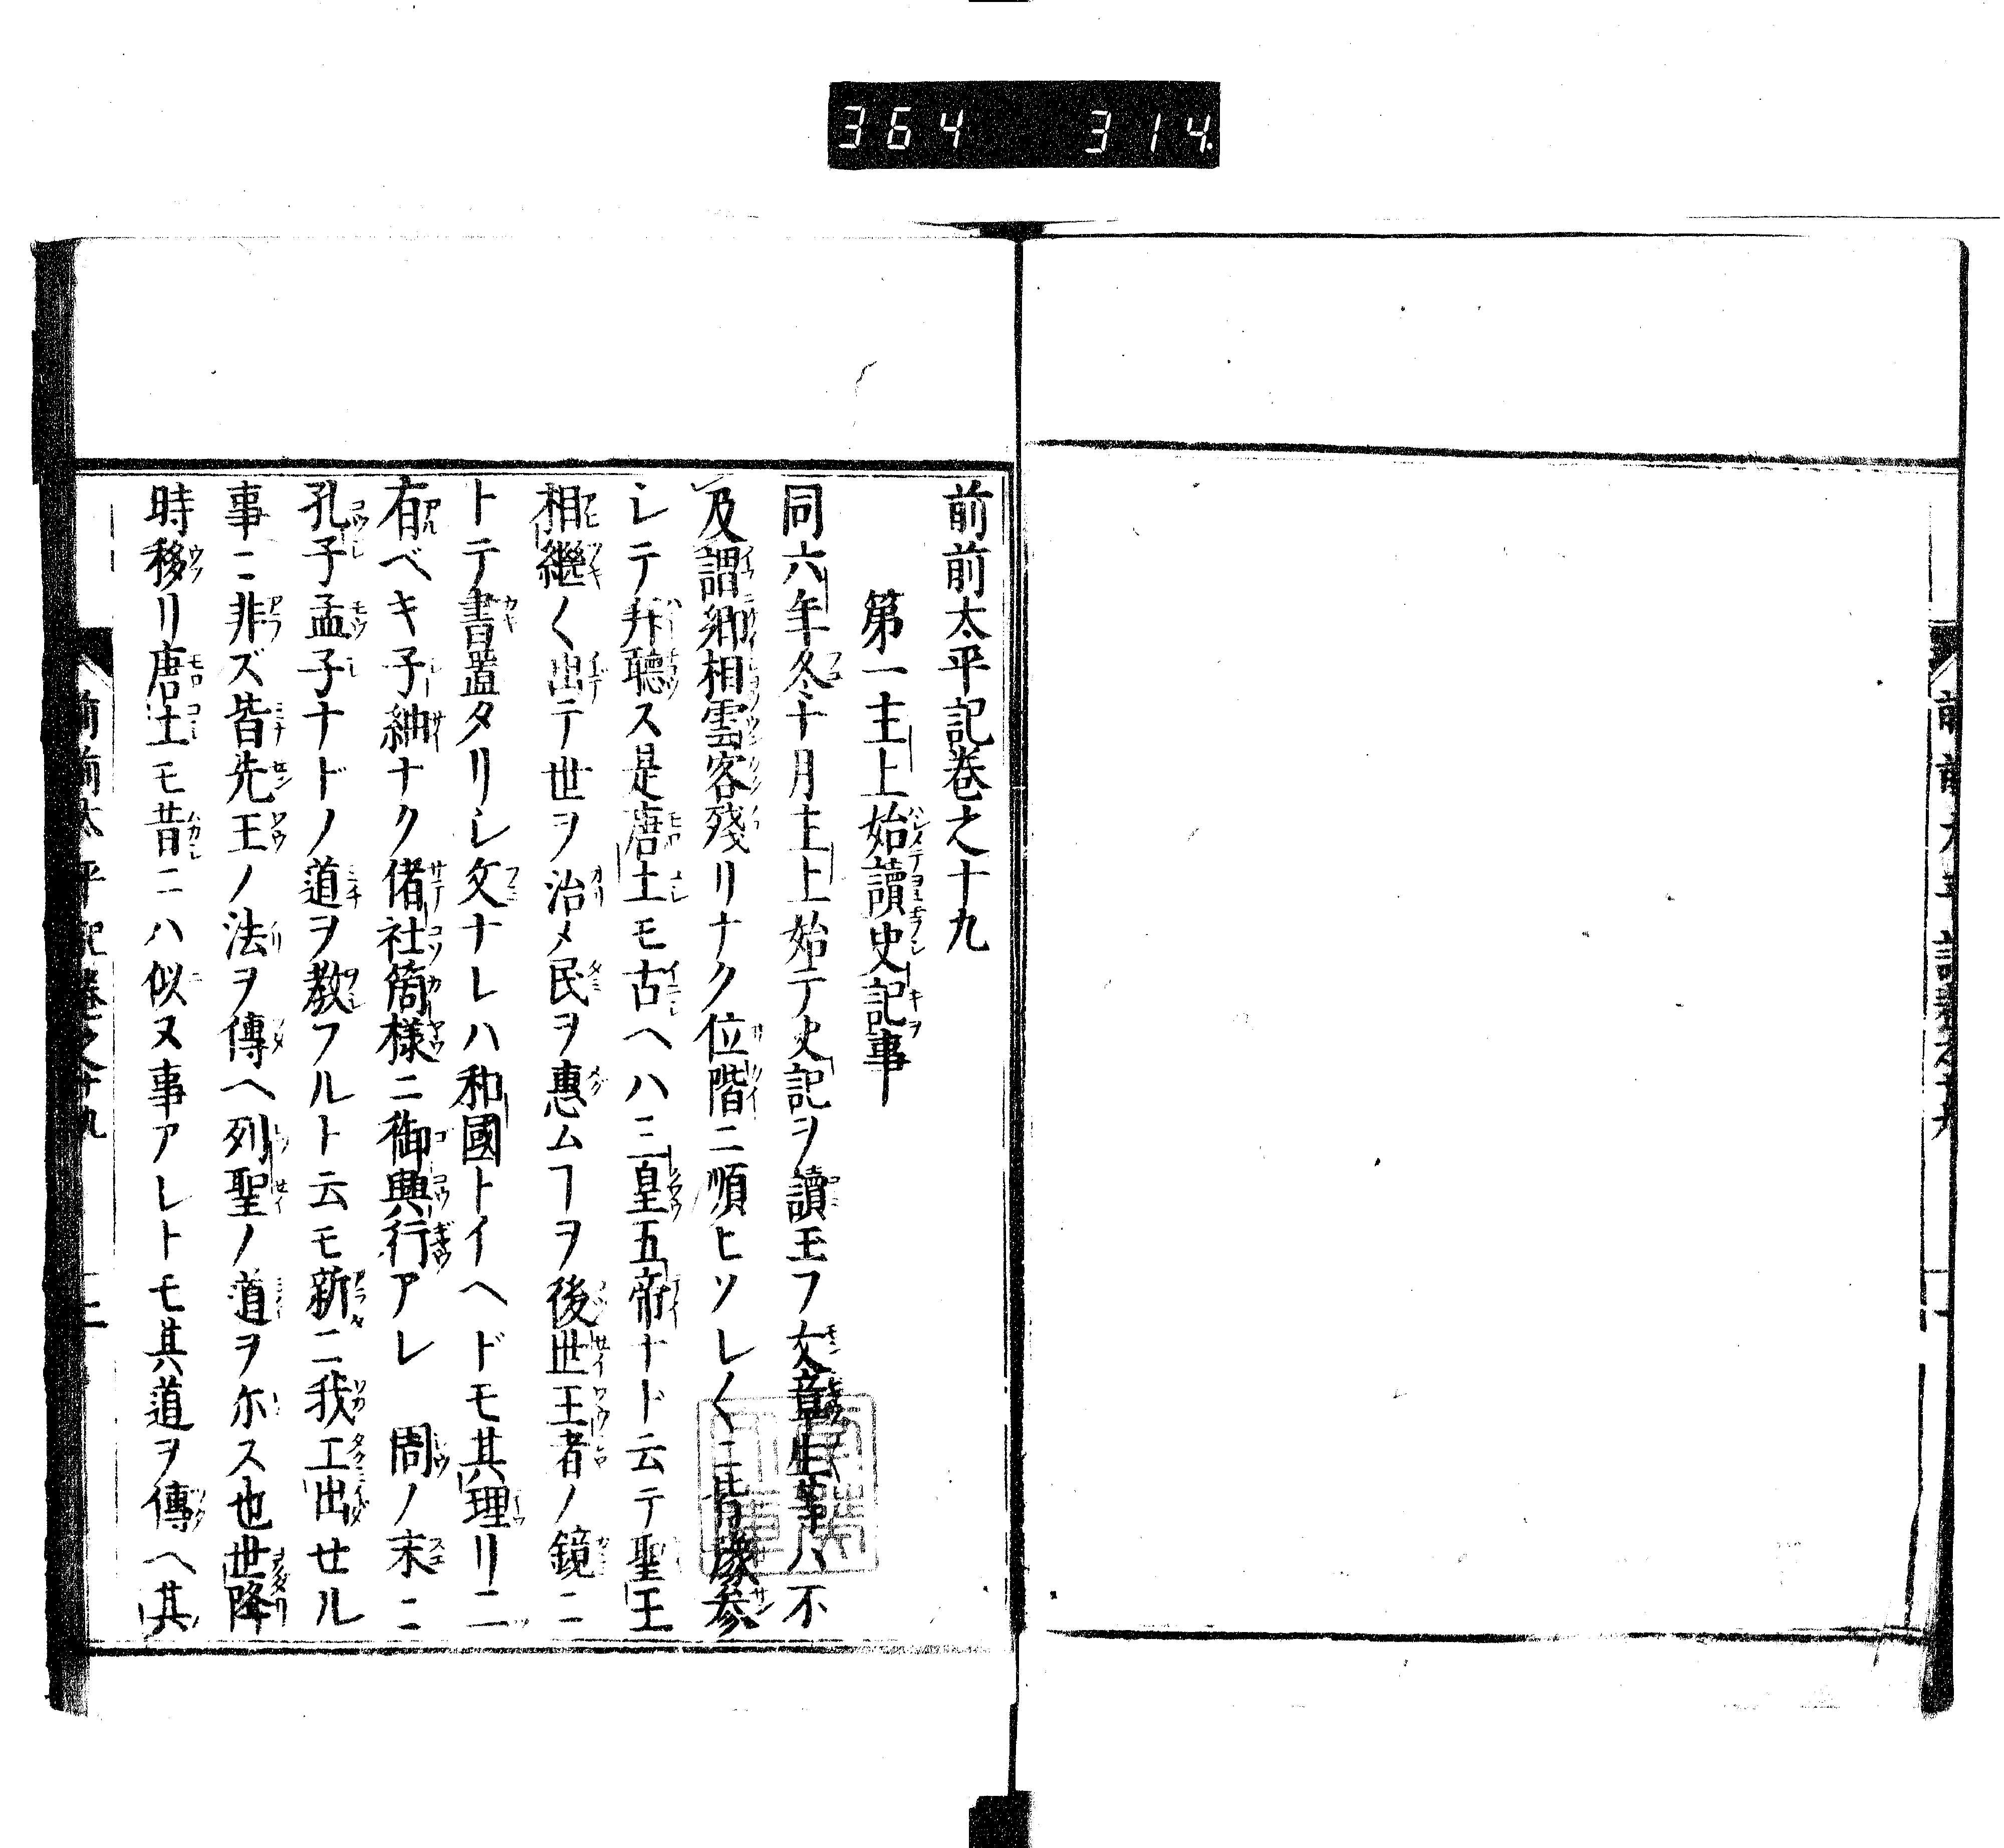 364 314
前前太平記卷之十九
第一主上始讀史記事
同六年冬十月主上始テ史記ヲ讀玉フ文章生等ハ不
及謂卿相雲客殘リナク位階ニ順ヒソレ〱ニ皆豫參
シテ幷聽ス是唐土モ古ヘハ三皇五帝ナド云テ聖王
相繼〱出テ世ヲ治メ民ヲ惠ムヿヲ後世王者ノ鏡ニ
トテ書置タリシ文ナレハ和國トイヘドモ其理リ二
有ベキ子細ナク偖社箇樣ニ御興行アレ 周ノ末ニ
孔子孟子ナドノ道ヲ教フルト云モ新ニ我工出セル
事ニ非ズ皆先王ノ法ヲ傳ヘ列聖ノ道ヲ尓ス也世降
時移リ唐土モ昔ニハ似ヌ事アレトモ其道ヲ傳ヘ其
前前太平記卷之十九